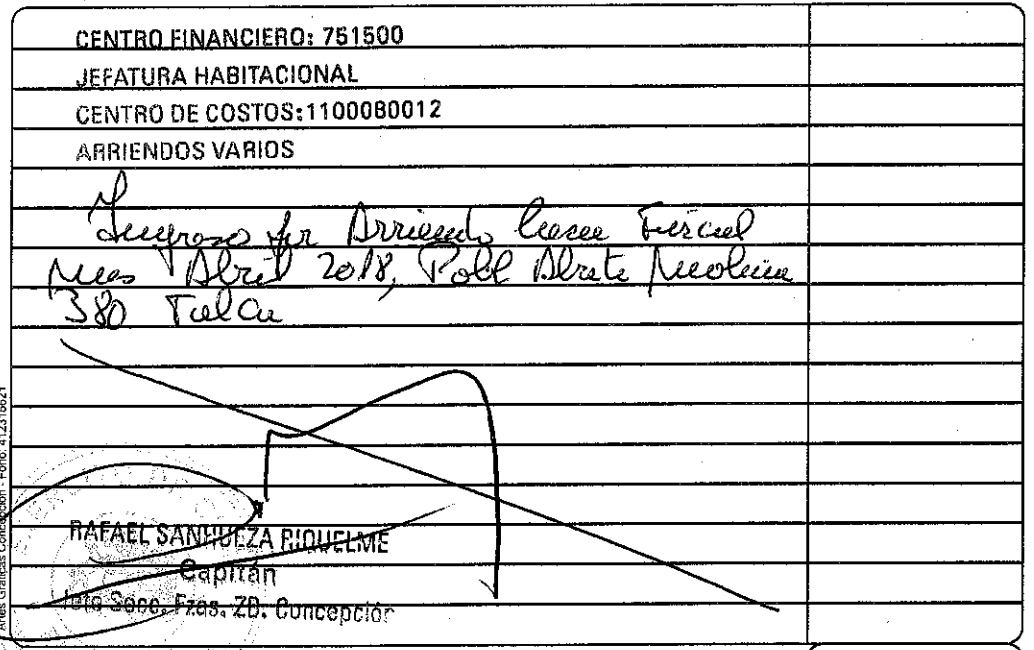 CENTRO FINANCIERO: 751500
JEFATURA HABITACIONAL
CENTRO DE COSTOS:1100080012
ARRIENDOS VARIOS
Ingreso por Arriendo Casa Fiscal
Mes Abril 2018, Pobl Abate Molina
380 Talca
RAFAEL SANHUEZA RIQUELME
Capitán
Jefe Secc. Fzas. ZD. Concepción
Artes Gráficas Concepción - Fono: 412318621